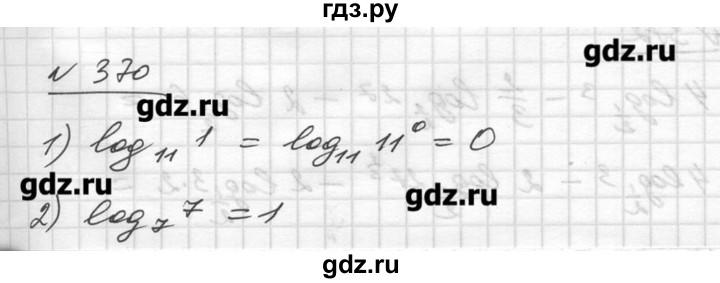 гдз.ру
gdz.ru
№ 370
gdz.ru
1) log₁₁ 1 = log₁₁ 11⁰ = 0
gdz.ru
gdz.ru
2) log₇ 7 = 1
gdz.ru